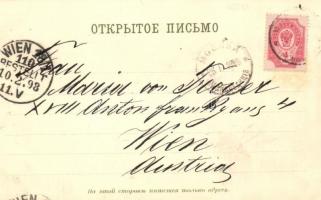 ОТКРЫТОЕ ПИСЬМО
WIEN
110
BESTELLT
10.2.98
11.V
Frau
Maria von
XVIII Anton Frank gasse
Wien
Austria
На этой сторонѣ пишется только адресъ.
WIEN